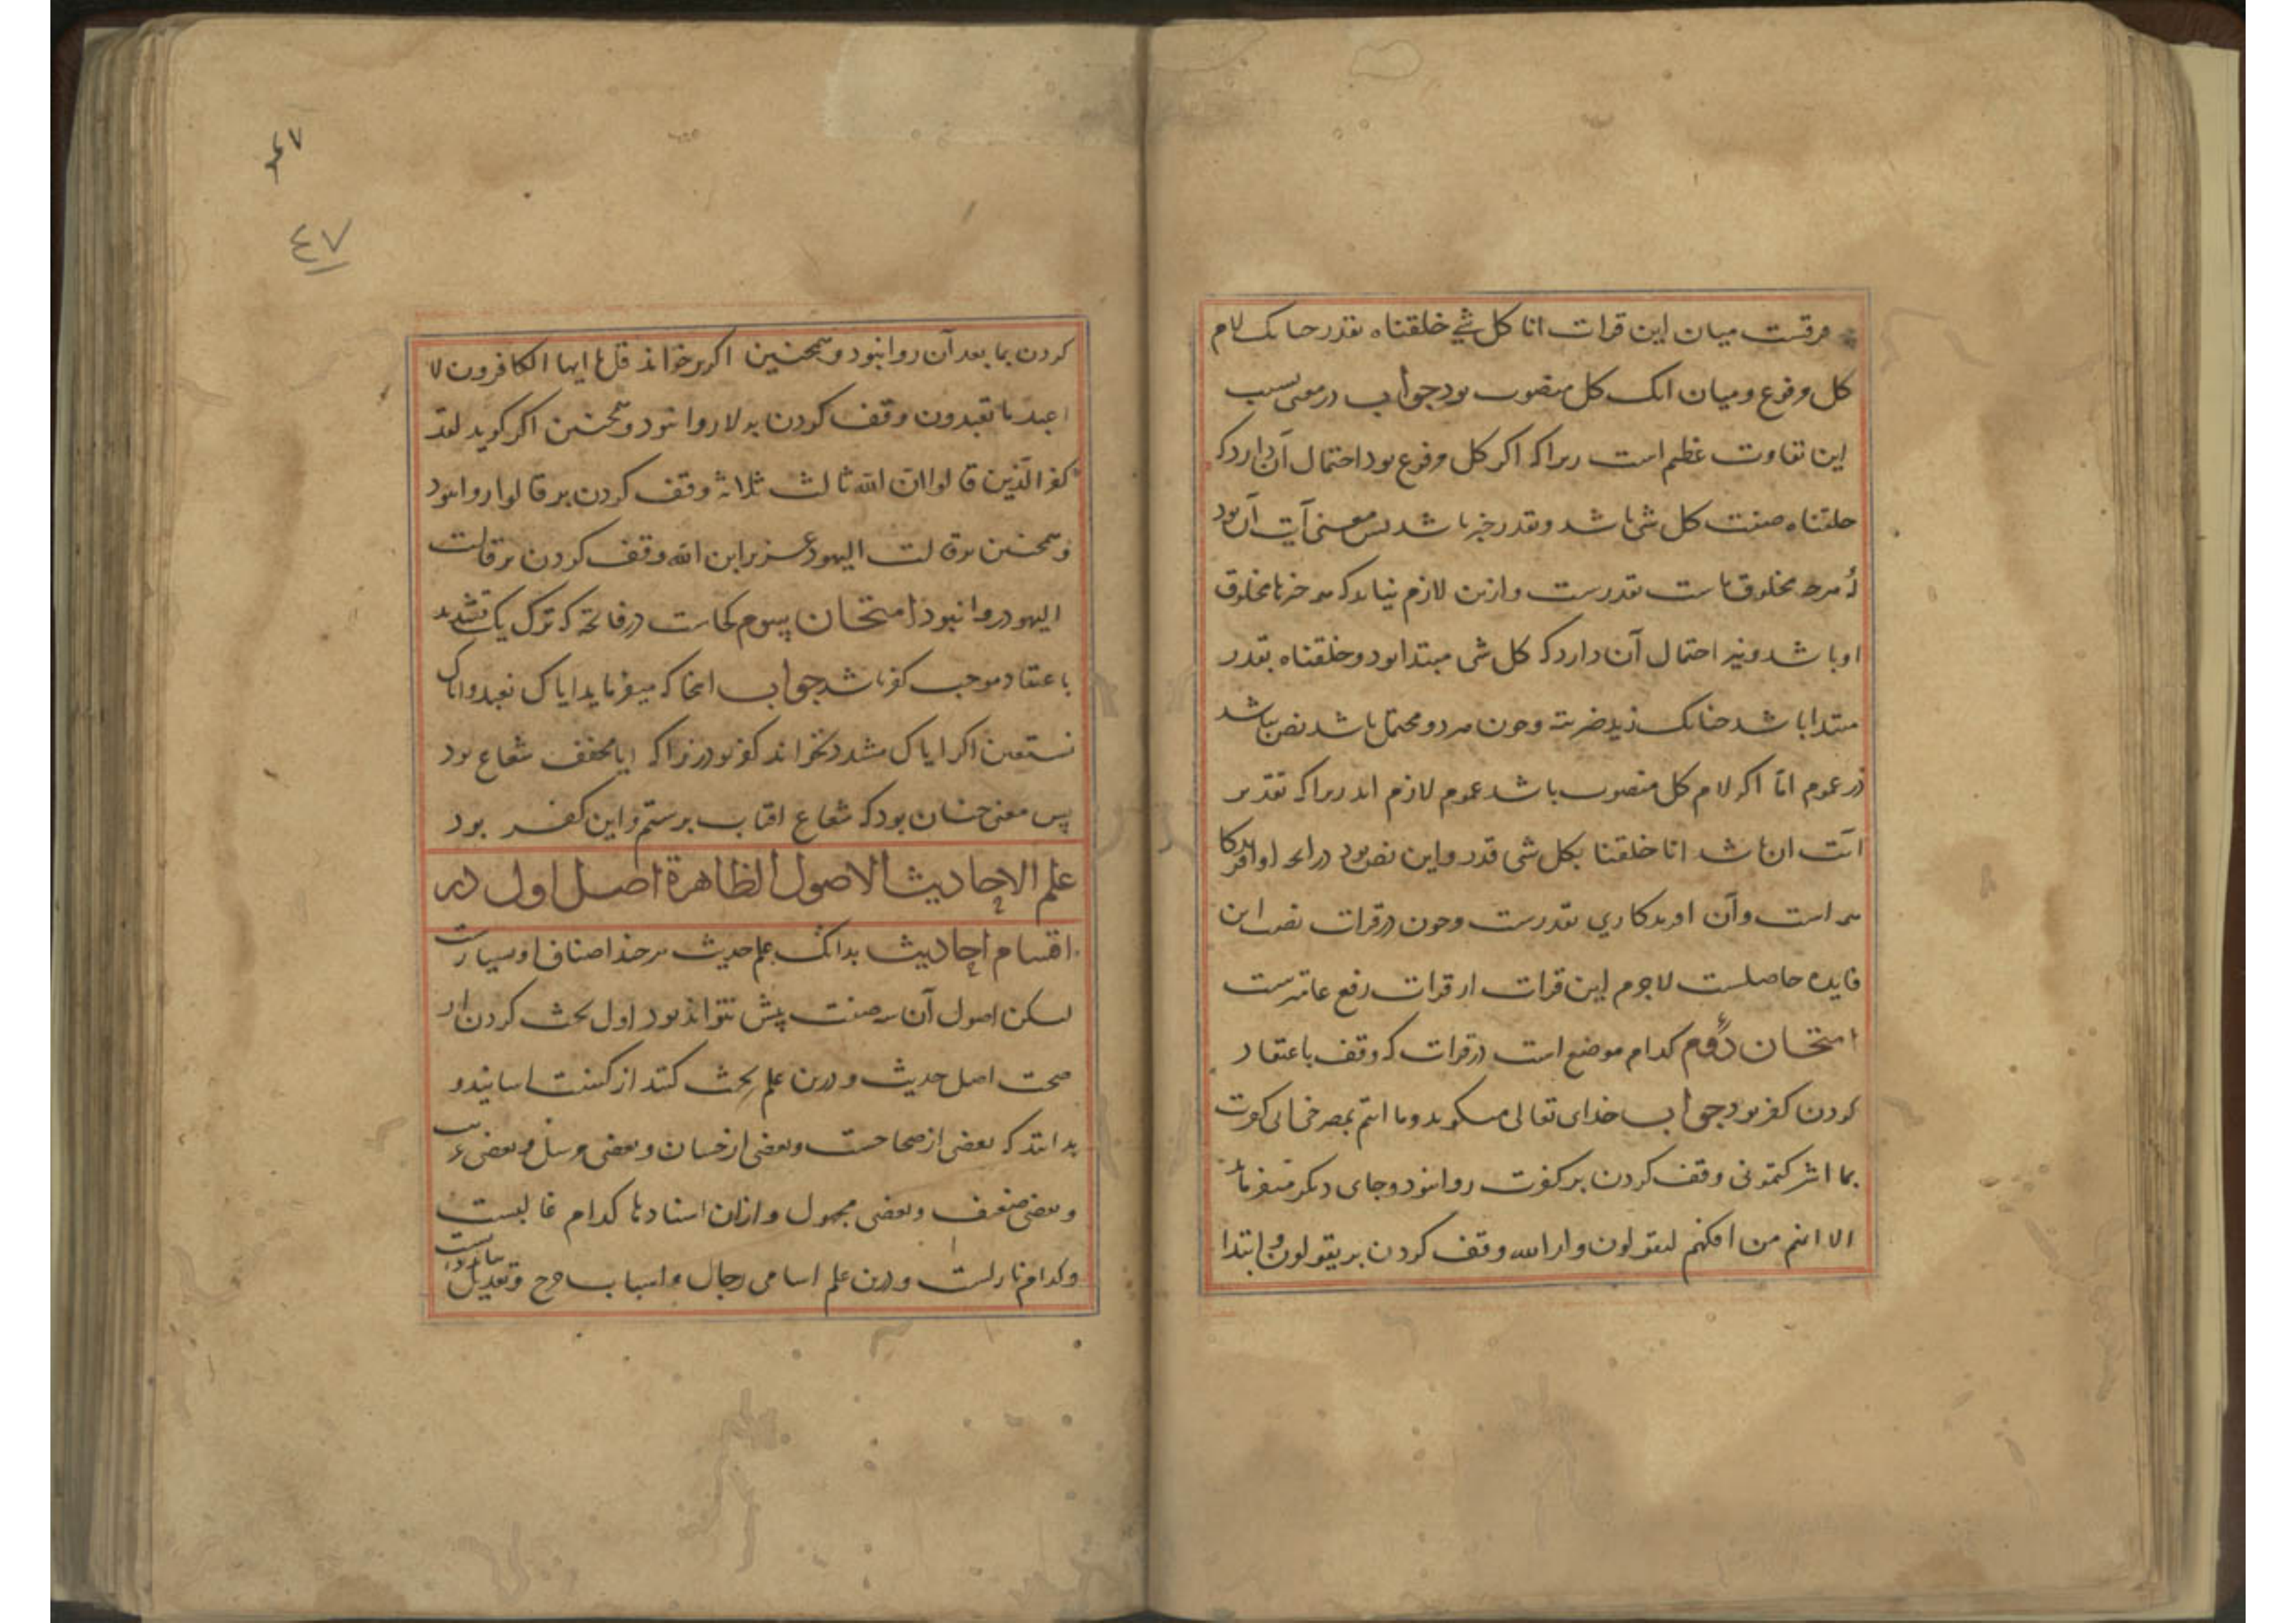 فرقست میان این قرات انا کل شی خلقناه بقدر چنانک لام
کل مرفوع و میان انک کل منصوب بود جواب در معنی بسبب
این تفاوت عظیم است زیرا که اگر کل مرفوع بود احتمال آن دارد که
خلقناه صفت کل شی باشد و بقدر خبر باشد پس معنی آیت آن بود
که هرچه مخلوق ماست بقدرست و ازین لازم نیاید که همه چیزها مخلوق
او باشد و نیز احتمال آن دارد که کل شی مبتدا بود و خلقناه بقدر
مبتدا باشد چنانک زید ضربته و چون هر دو محتمل باشد نص نباشد
در عموم اما اگر لام کل منصوب باشد عموم لازم اید زیرا که تقدیر
ایت ان باشد انا خلقنا کل شی بقدر و این نص بود در انچه او افریدکار
همه است و آن افریدکاری بقدرست و چون در قرات نصب این
فایده حاصلست لاجرم این قرات از قرات رفع عامترست
امتحان دوم کدام موضع است در قرات که وقف باعتقاد
کردن کفر بود جواب خدای تعالی میکوید و ما انتم بمصرخی انی کفرت
بما اشرکتمونی وقف کردن بر کفرت روا نبود و جای دیکر میفرماید
الا انهم من افکهم لیقولون ولد الله وقف کردن بر یقولون و ابتدا
٤٧
٤٧
کردن بما بعد آن روا نبود و همچنین اگر برخواند قل یا ایها الکافرون لا
اعبد ما تعبدون وقف کردن بر لا روا نبود و همچنین اکر کوید لقد
کفر الذین قالوا ان الله ثالث ثلاثة وقف کردن بر قالوا روا نبود
و همچنین وقالت الیهود عزیر ابن الله وقف کردن بر قالت
الیهود روا نبود امتحان سوم کجاست در فاتحه که ترک یک تشدید
باعتقاد موجب کفر باشد جواب انجا که میفرماید ایاک نعبد و ایاک
نستعین اکر ایاک مشدد نخواند کفر بود زیرا که ایا مخفف شعاع بود
پس معنی چنان بود که شعاع افتاب پرستم و این کفر بود
علم الاحادیث الاصول الظاهرة اصل اول در
اقسام احادیث بدانک علم حدیث هرچند اصناف او بسیارست
لیکن اصول آن سه صنف بیش نتواند بود اول بحث کردن از
صحت اصل حدیث و درین علم بحث کنند از کمیت اسانید و
بدانند که بعضی از صحاحست و بعضی از حسان و بعضی مرسل و بعضی غریب
و بعضی ضعیف و بعضی مجهول و ازان اسنادها کدام عالیست
و کدام نازلست و درین علم اسامی رجال و اسباب جرح و تعدیل